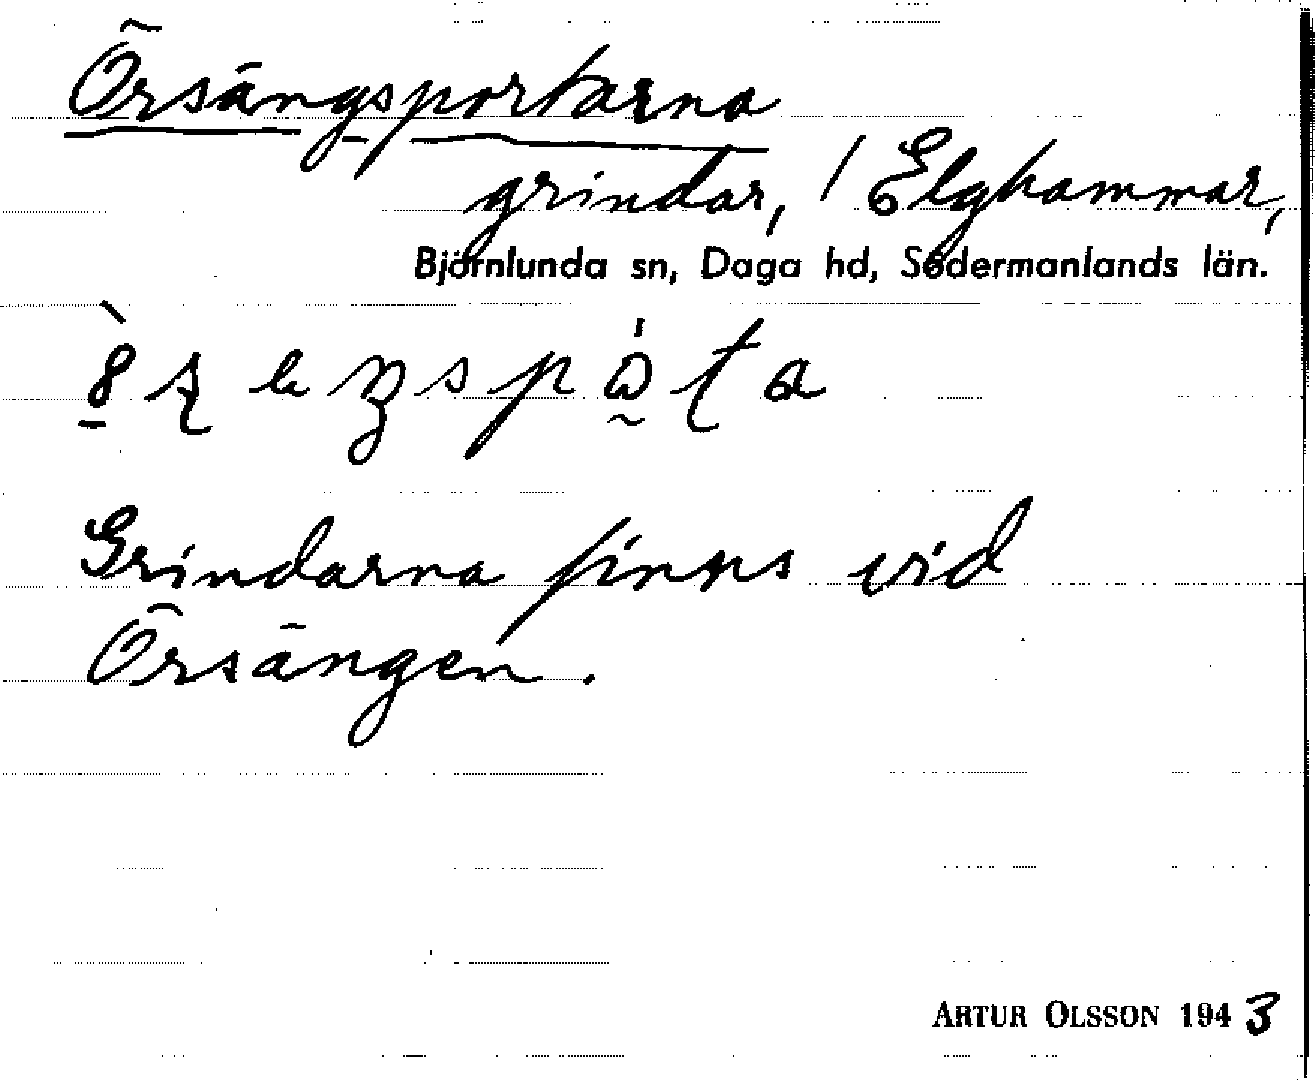 Örsängsportarna
grindar, / Elghammar,
Björnlunda sn, Daga hd, Södermanlands län.
Grindarna finns vid
Örsängen.
ARTUR OLSSON 1943